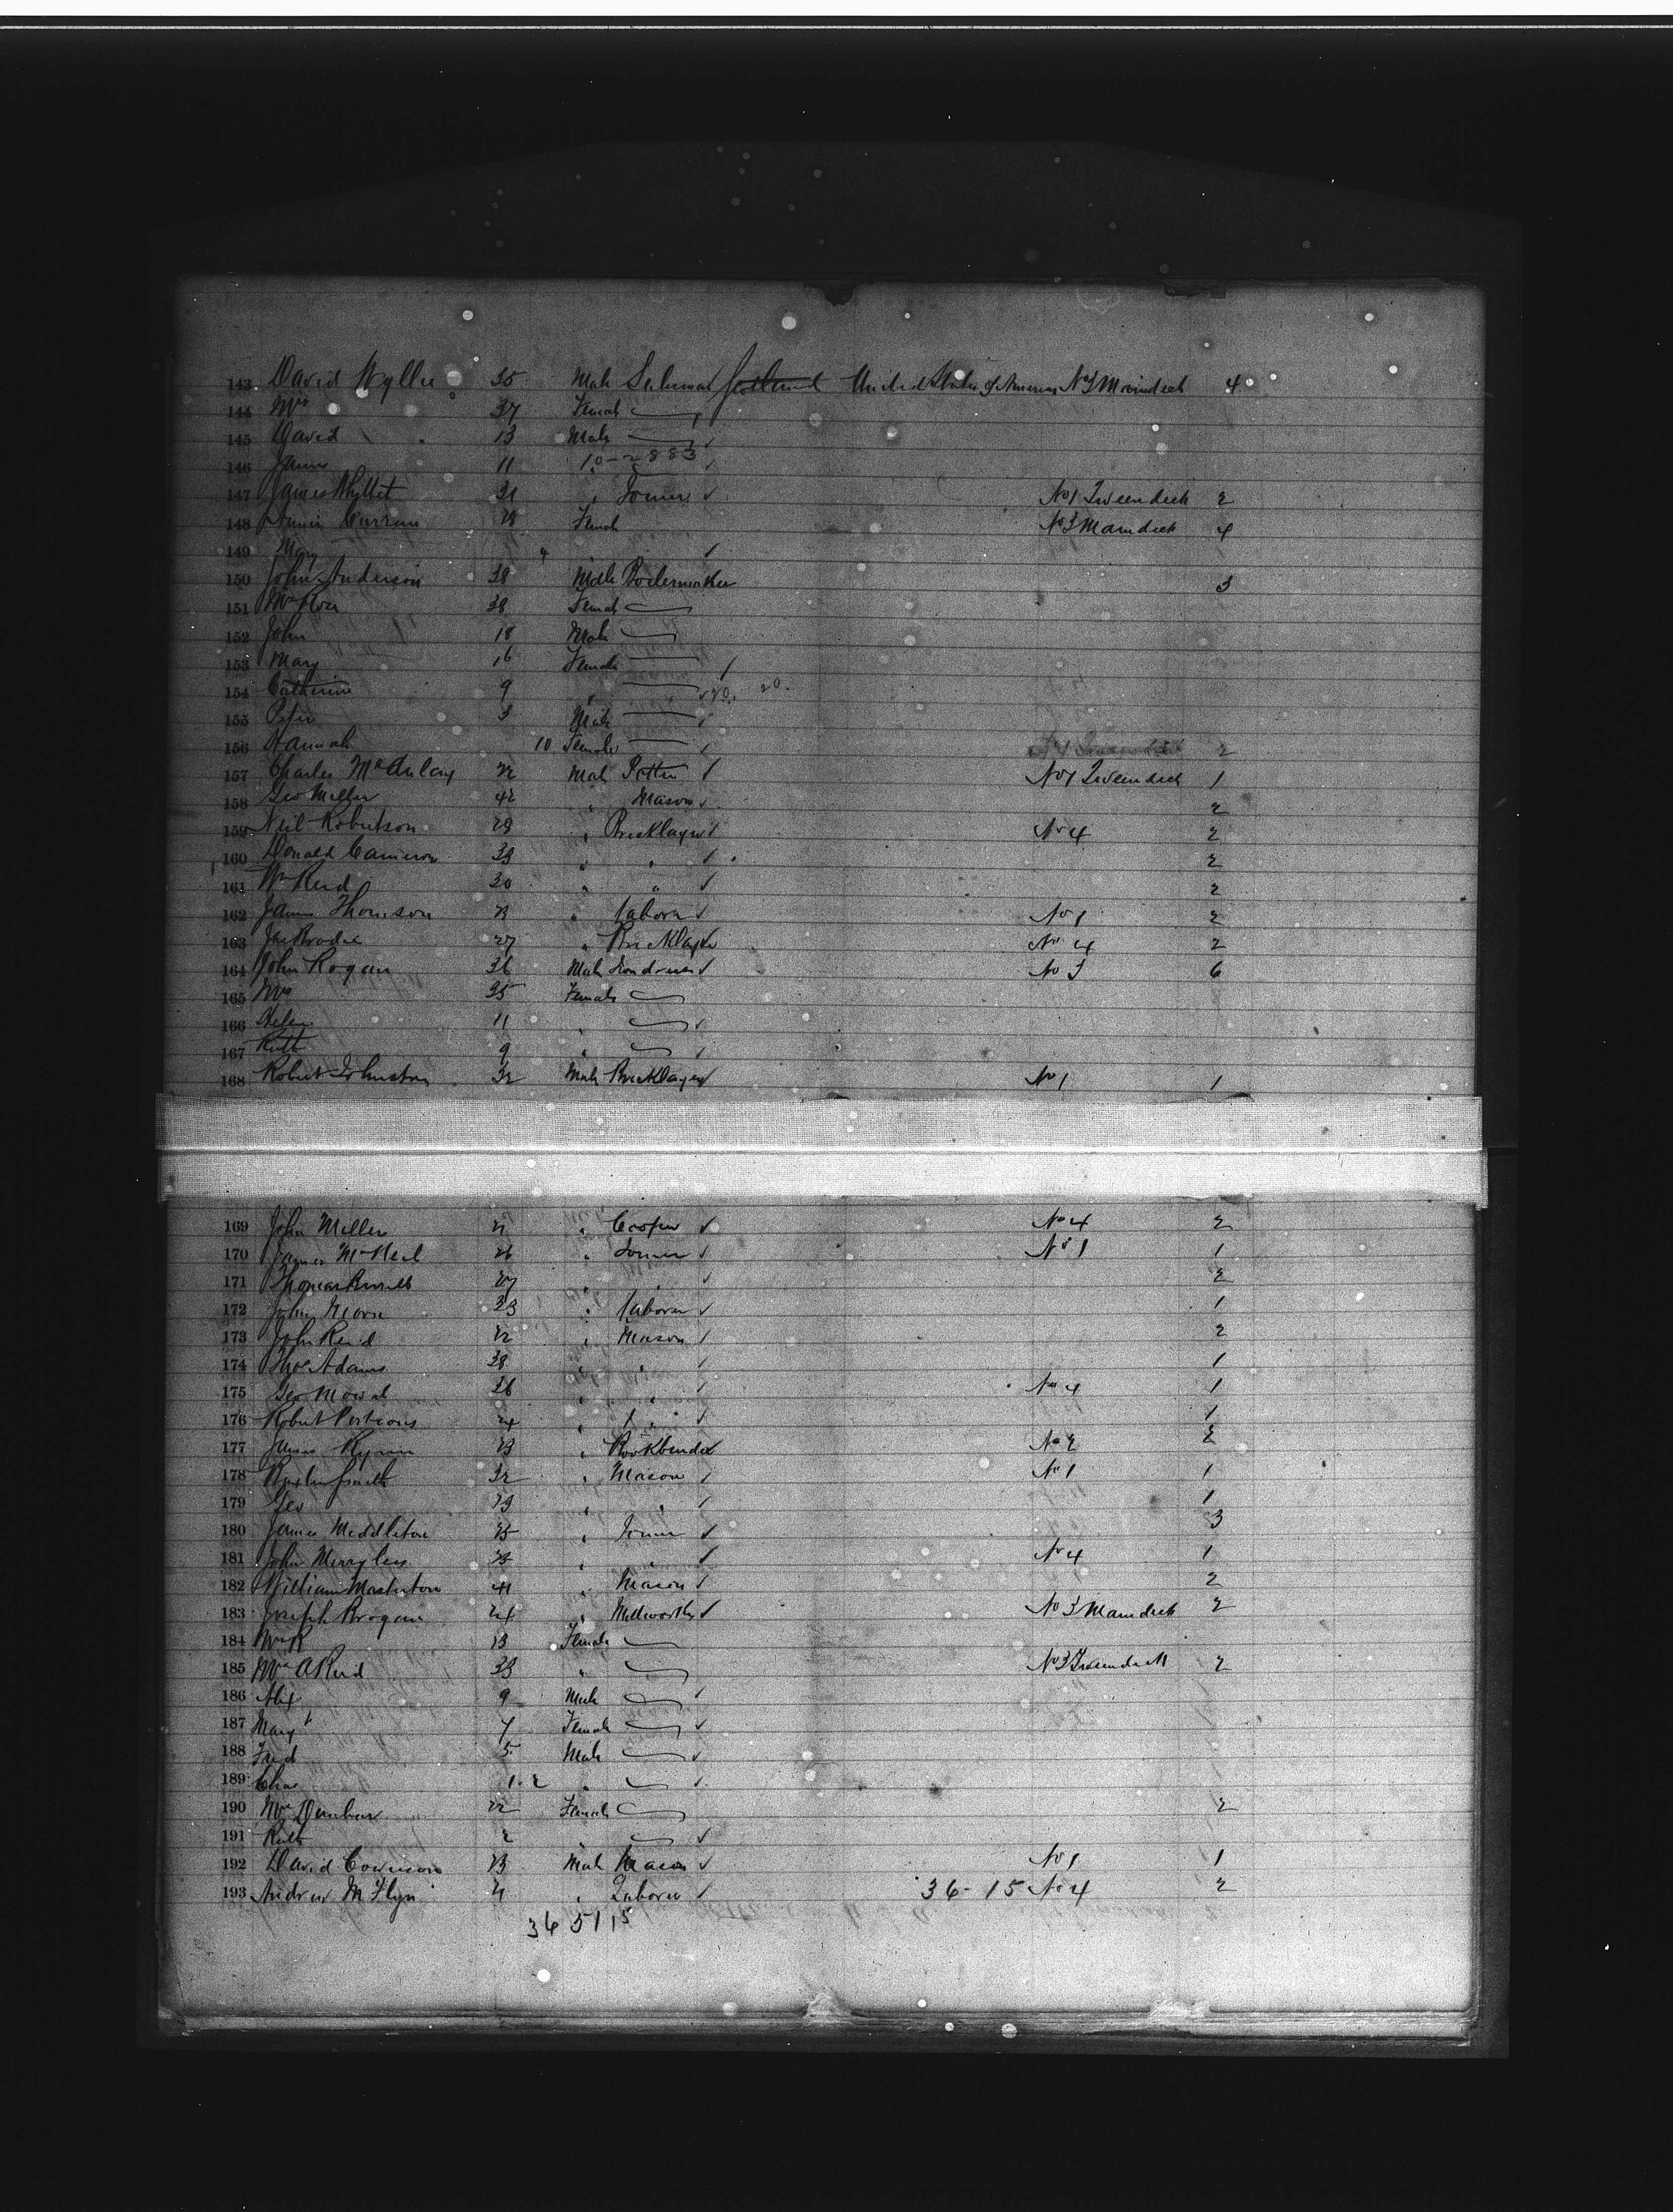 143 David Wyllie 35 Male Salesman Scotland United States of America No 3 Maindeck 4
144 Mrs 37 Female
145 David 13 Male
146 James 11 10-2883
147 James 31 " Joiner No 1 Tweendeck 2
148 Annie Curran 28 Female No 3 Maindeck 4
149 Mary 4
150 John Anderson 38 Male Boilermaker 3
151 Mrs 38 Female
152 John 18 Male
153 Mary 16 Female
154 Catherine 9 " 20. 20.
155 Peter 3 Male
156 Hannah 10 Female 2
157 Charles McAulay 22 Male Potter No 1 Tweendeck 1
158 Geo Miller 42 " Mason 2
159 Neil Robertson 28 " Bricklayer No 4 2
160 Donald Cameron 33 " " 2
161 Wm Reid 30 " " 2
162 James Thomson 23 " Laborer No 1 2
163 Jas Brodie 27 " Bricklayer No 4 2
164 John Rogan 36 Male No 3 6
165 Mrs 35 Female
166 Helen 11 "
167 Ruth 9 "
168 Robert Johnston 32 Male Bricklayer No 1 1
169 John Miller 21 " Cooper No 4 2
170 James McNeil 26 " Joiner No 1 1
171 Thomas 27 " " 2
172 John 33 " Laborer 1
173 John Reid 22 " Mason 2
174 Thos Adams 38 " " 1
175 Geo Mowat 36 " " No 4 1
176 Robert Porteous 24 " " 1
177 James 23 " Bookbinder No 2 2
178 Smith 32 " Mason No 1 1
179 Geo 23 " " 1
180 James Middleton 25 " Joiner 3
181 John Merrylees 23 " " No 4 1
182 William Masterton 41 " Mason 2
183 Joseph Brogan 24 " Millworker No 3 Maindeck 2
184 Mrs 23 Female
185 Mrs A Reid 33 " No 3 Tweendeck 2
186 Alex 9 Male
187 Margt 7 Female
188 Fred 5 Male
189 Chas 1.2 "
190 Mrs Dunbar 22 Female 2
191 Ruth 2 "
192 David 23 Male Mason No 1 1
193 Andrew McFlyn 21 " Laborer 36-15 No 4 2
36 51 15